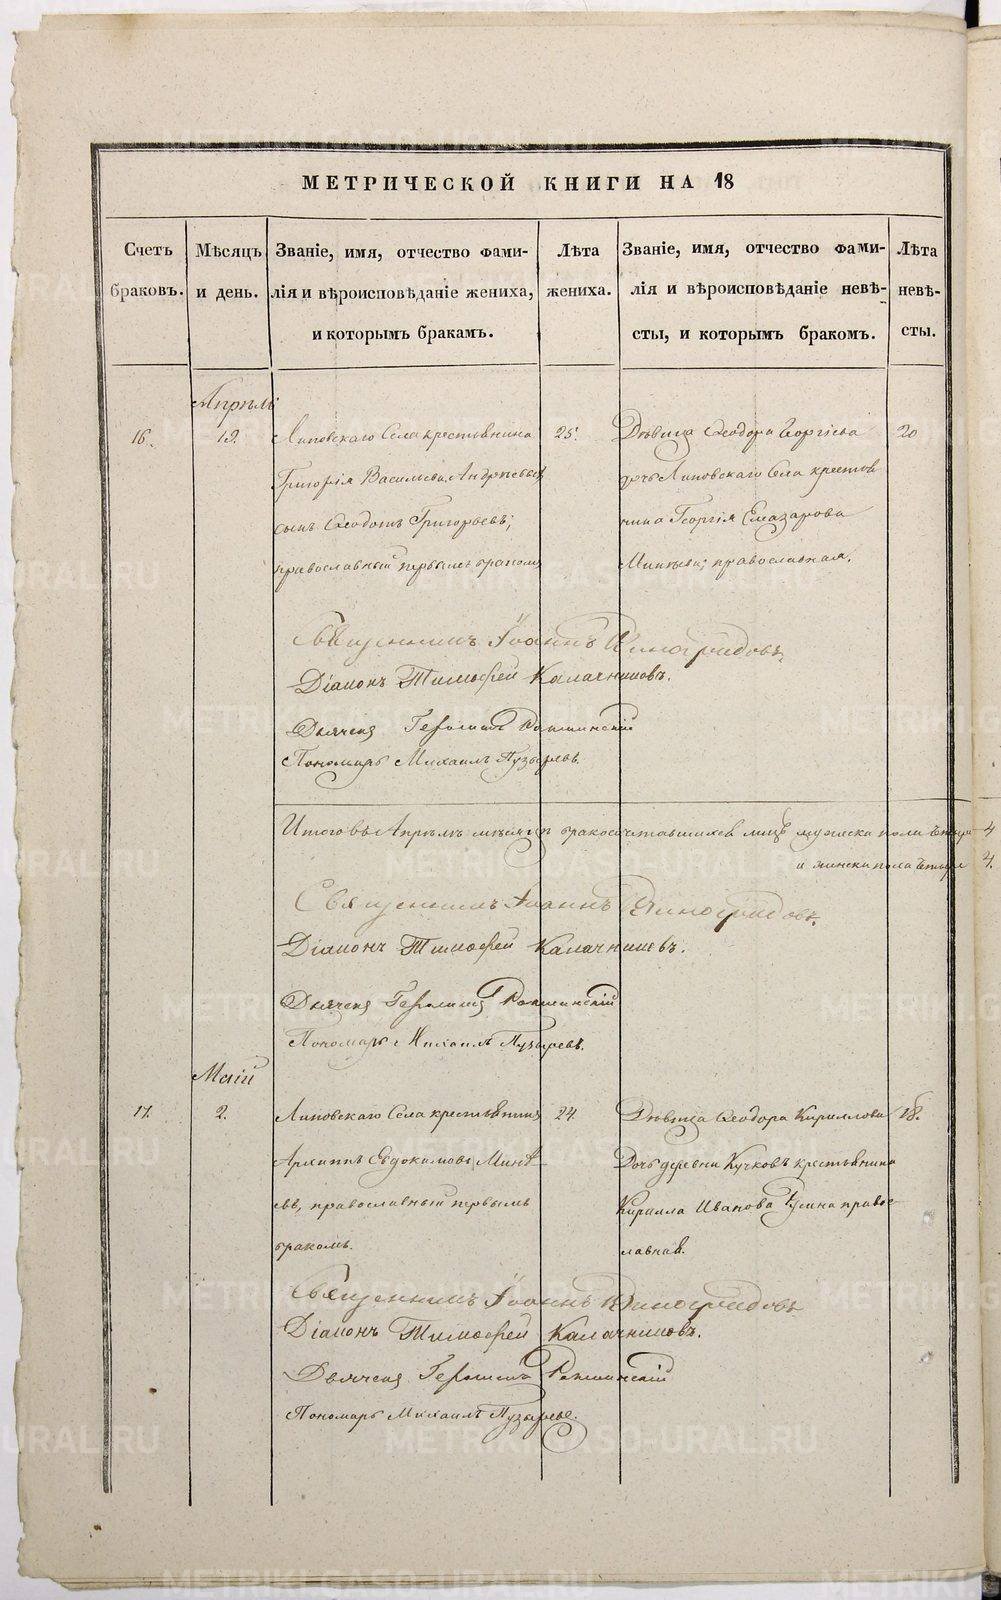 МЕТРИЧЕСКОЙ КНИГИ НА 18
Счетъ браковъ.
Мѣсяцъ и день.
Званіе, имя, отчество фами-
лія и вѣроисповѣданіе жениха,
и которымъ бракамъ.
Лѣта жениха.
Званіе, имя, отчество фами-
лія и вѣроисповѣданіе невѣ-
сты, и которымъ бракомъ.
Лѣта невѣ-
сты.
Апрѣль
16.
19.
Липовскаго Села крестьянина
Григорія Васильева Андреевыхъ
сынъ Ѳеодотъ Григорьевъ;
православный первымъ бракомъ
25.
Дѣвица Ѳеодора Георгіева
дочь Липовскаго Села крестья
нина Георгія
Минѣева; православная.
20
Священникъ Іоаннъ Виноградовъ.
Діаконъ Тимоѳей Калачниковъ.
Дьячекъ
Пономарь Михаилъ Пузыревъ
Итого въ Апрѣлѣ мѣсяцѣ бракосочетавшихся лицъ мужеска пола четыре 4
и женска пола четыре 4.
Священникъ Іоаннъ Виноградовъ.
Діаконъ Тимоѳей Калачниковъ.
Дьячекъ
Пономарь Михаилъ Пузыревъ.
Маій
17.
2.
Липовскаго Села крестьянинъ
Архиппъ Евдокимовъ Минѣ
евъ, православный первымъ
бракомъ.
24
Дѣвица Ѳеодора Кириллова
Дочь деревни Кучковъ крестьянина
Кирилла Иванова правос-
лавная.
18.
Священникъ Іоаннъ Виноградовъ
Діаконъ Тимоѳей Калачниковъ.
Дьячекъ
Пономарь Михаилъ Пузыревъ.
METRIKI.GASO-URAL.RU